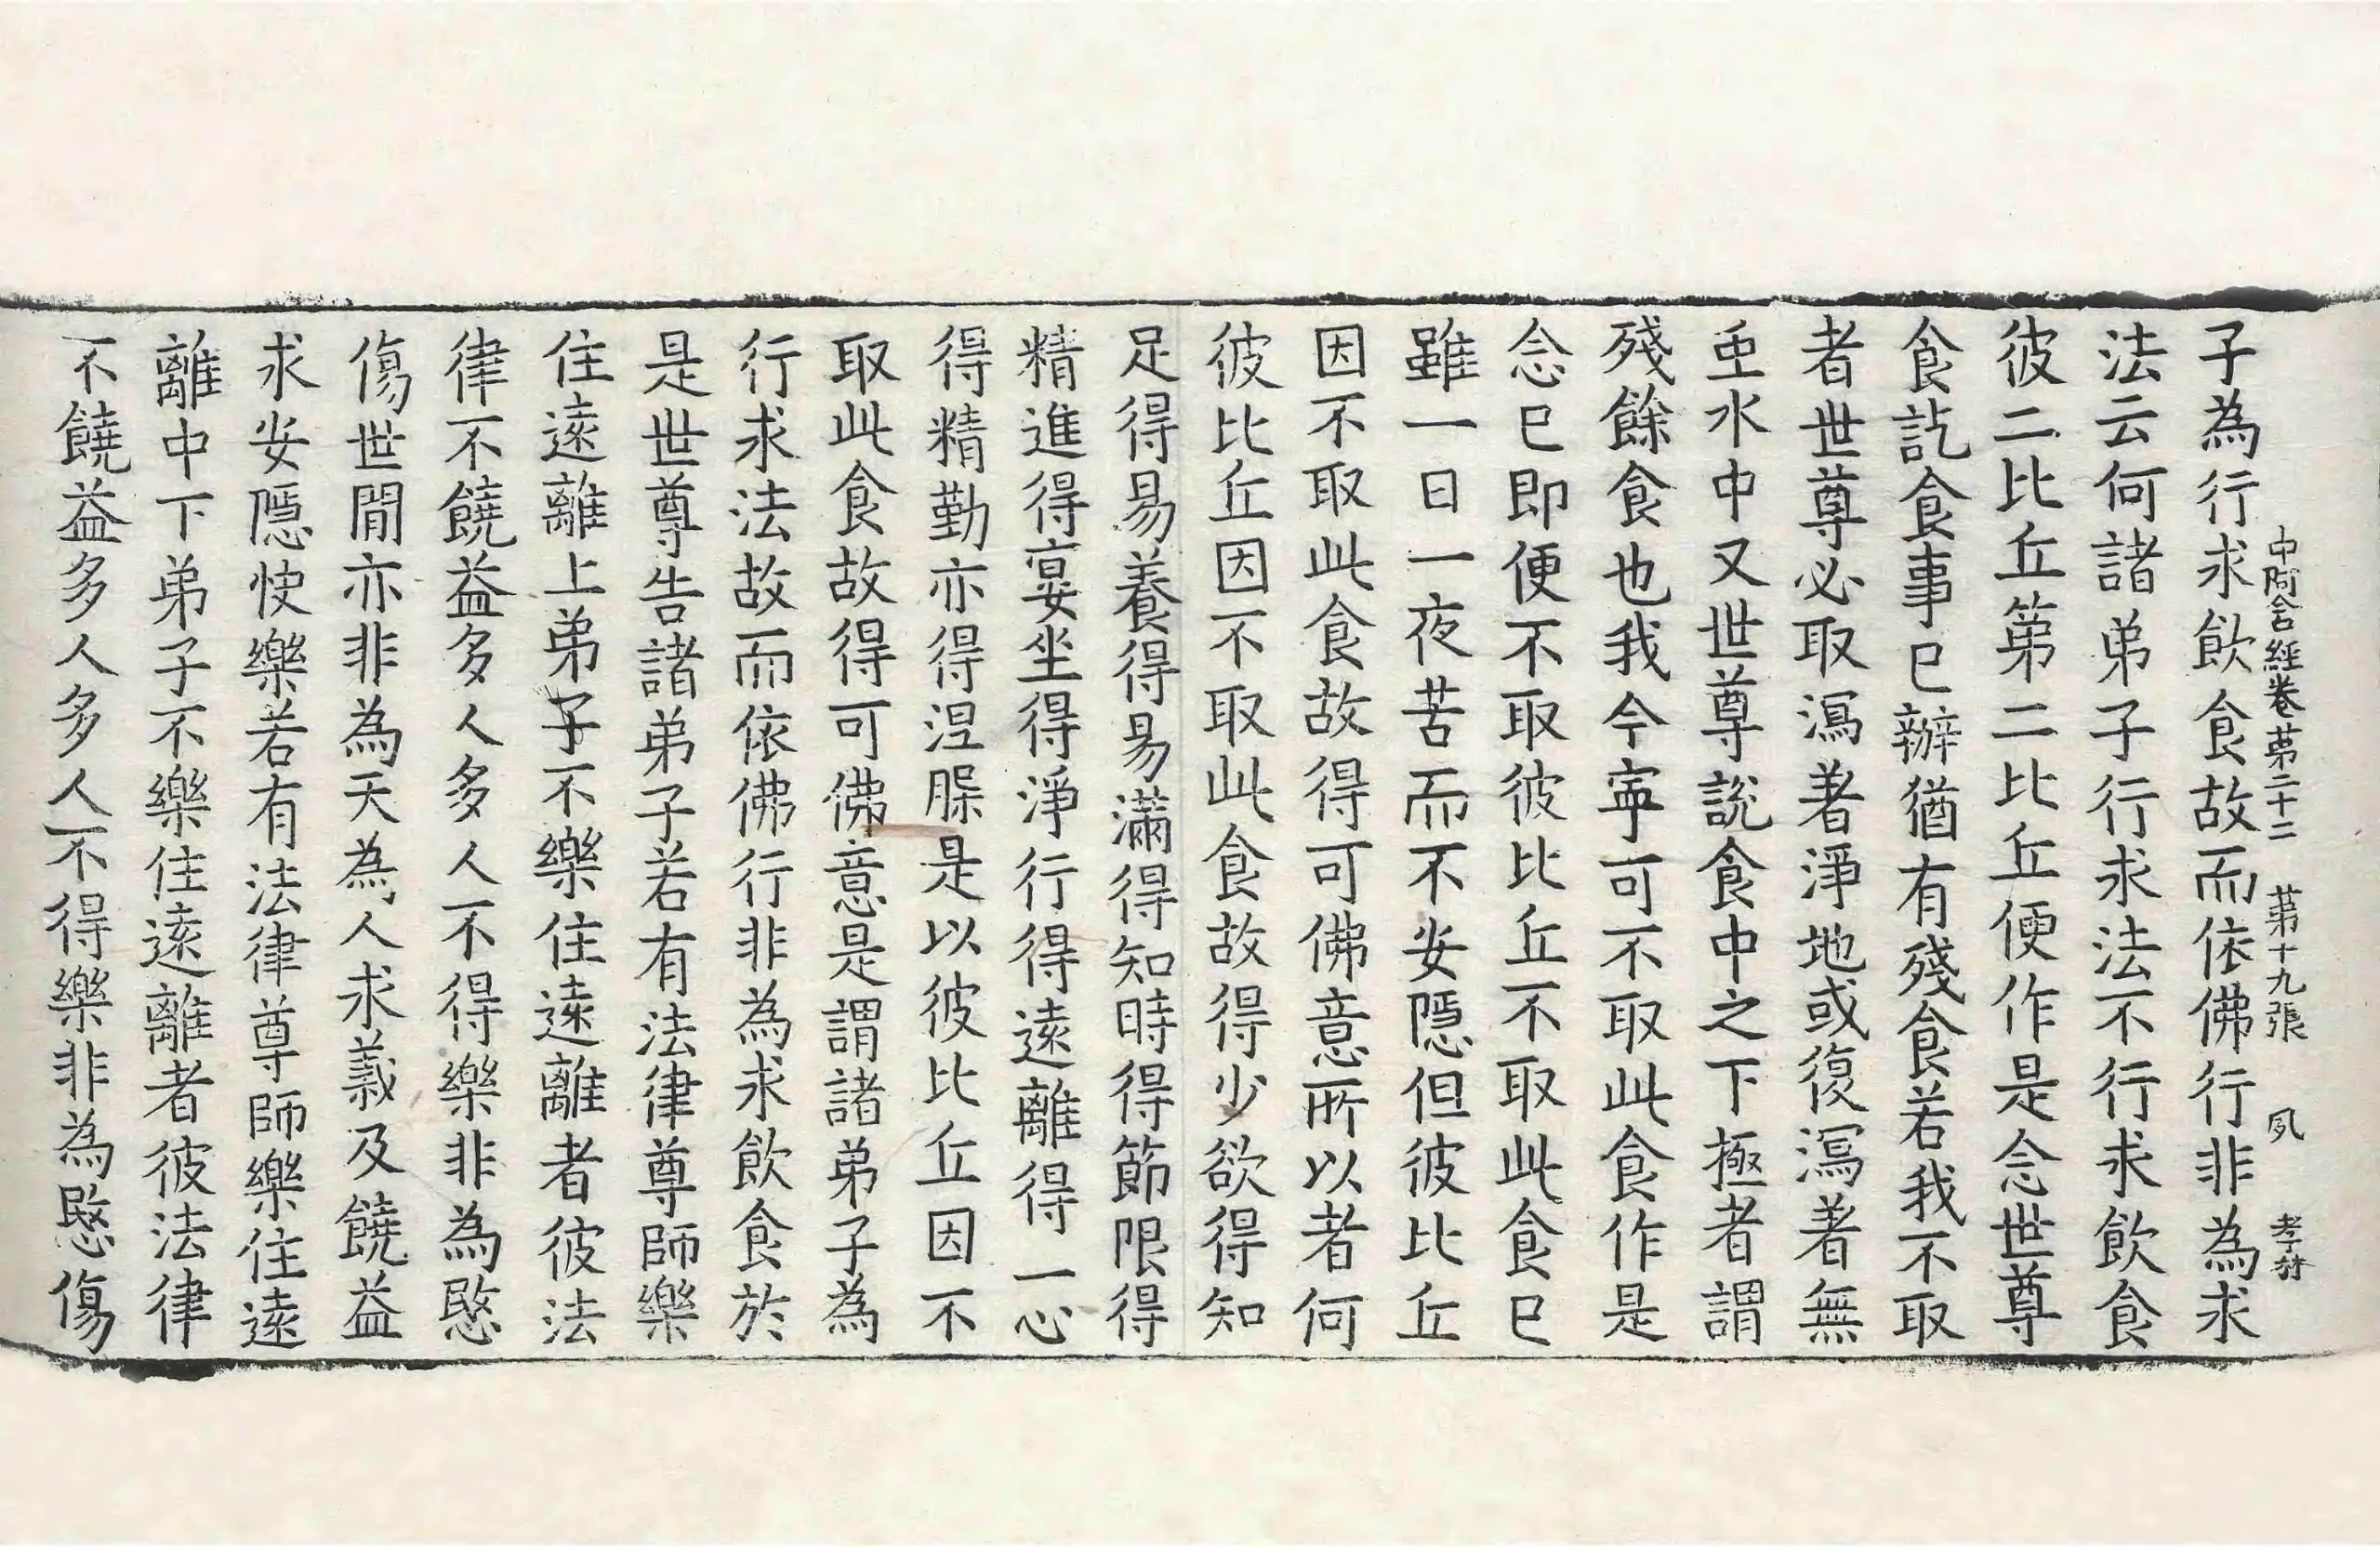 中阿含經卷第二十二 第十九張 夙 孝林
子為行求飲食故而依佛行非為求
法云何諸弟子行求法不行求飲食
彼二比丘第二比丘便作是念世尊
食訖食事已辦猶有殘食若我不取
者世尊必取瀉著淨地或復瀉著無
虫水中又世尊說食中之下極者謂
殘餘食也我今寧可不取此食作是
念已即便不取彼比丘不取此食已
雖一日一夜苦而不安隱但彼比丘
因不取此食故得可佛意所以者何
彼比丘因不取此食故得少欲得知
足得易養得易滿得知時得節限得
精進得宴坐得淨行得遠離得一心
得精勤亦得涅槃是以彼比丘因不
取此食故得可佛意是謂諸弟子為
行求法故而依佛行非為求飲食於
是世尊告諸弟子若有法律尊師樂
住遠離上弟子不樂住遠離者彼法
律不饒益多人多人不得樂非為愍
傷世間亦非為天為人求義及饒益
求安隱快樂若有法律尊師樂住遠
離中下弟子不樂住遠離者彼法律
不饒益多人多人不得樂非為愍傷